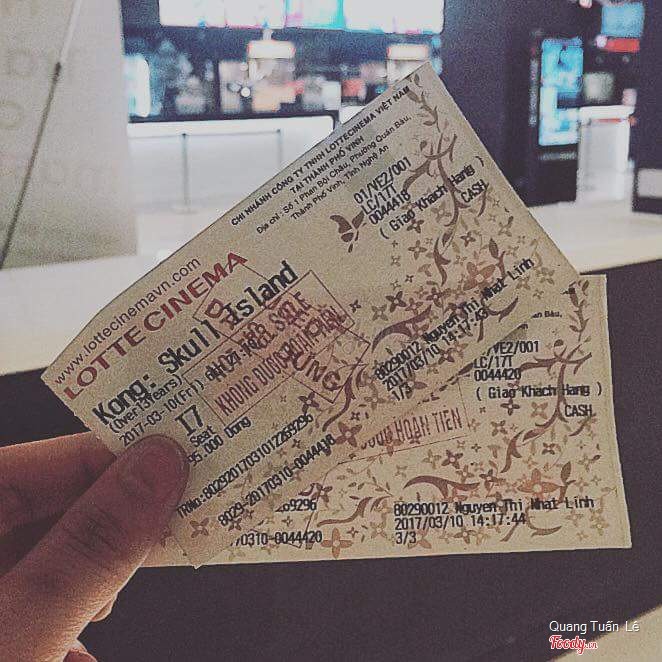 CHI NHÁNH CÔNG TY TNHH LOTTECINEMA VIỆT NAM
TẠI THÀNH PHỐ VINH
Địa chỉ: Số 1 Phan Bội Châu, Phường Quán Bàu,
Thành Phố Vinh, Tỉnh Nghệ An
www.lottecinemavn.com
LOTTE CINEMA
01/VE2/001
LC/17T
0044418
( Giao Khach Hang )
CASH
Kong: Skull Island
(Over13Years)
2017-03-10(Fri)
KHÔNG ĐƯỢC
I7
Seat
000 Dong
80290012 Nguyen Thi Nhat Linh
2017/03/10 14:17:43
1/3
TRNo:8029201703101226 9296
8029-20170310-0044418
Quán Bàu,
/VE2/001
LC/17T
0044420
( Giao Khach Hang )
CASH
HOÀN TIỀN
69296
80290012 Nguyen Thi Nhat Linh
2017/03/10 14:17:44
3/3
70310-0044420
Quang Tuấn Lê
Foody.vn